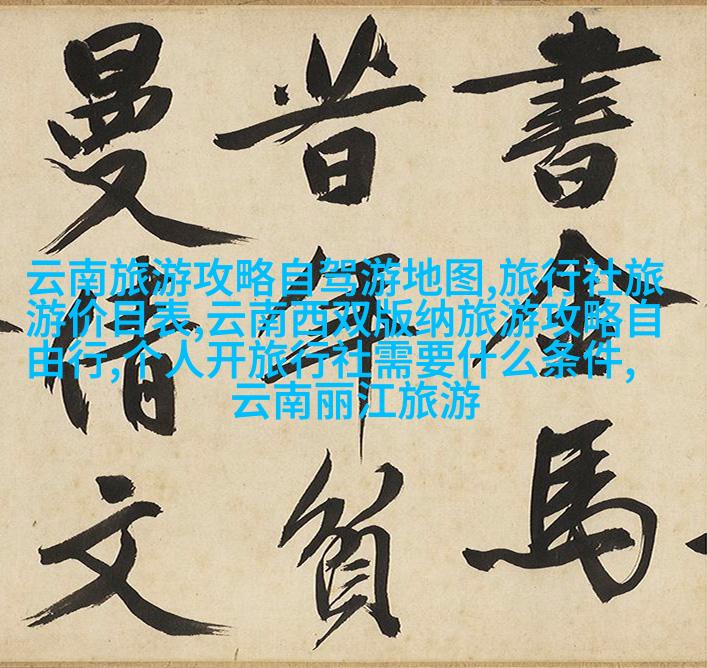 書金馬
昔年負
曼倩文
云南旅游攻略自驾游地图,旅行社旅
游价目表,云南西双版纳旅游攻略自
由行,个人开旅行社需要什么条件,
云南丽江旅游